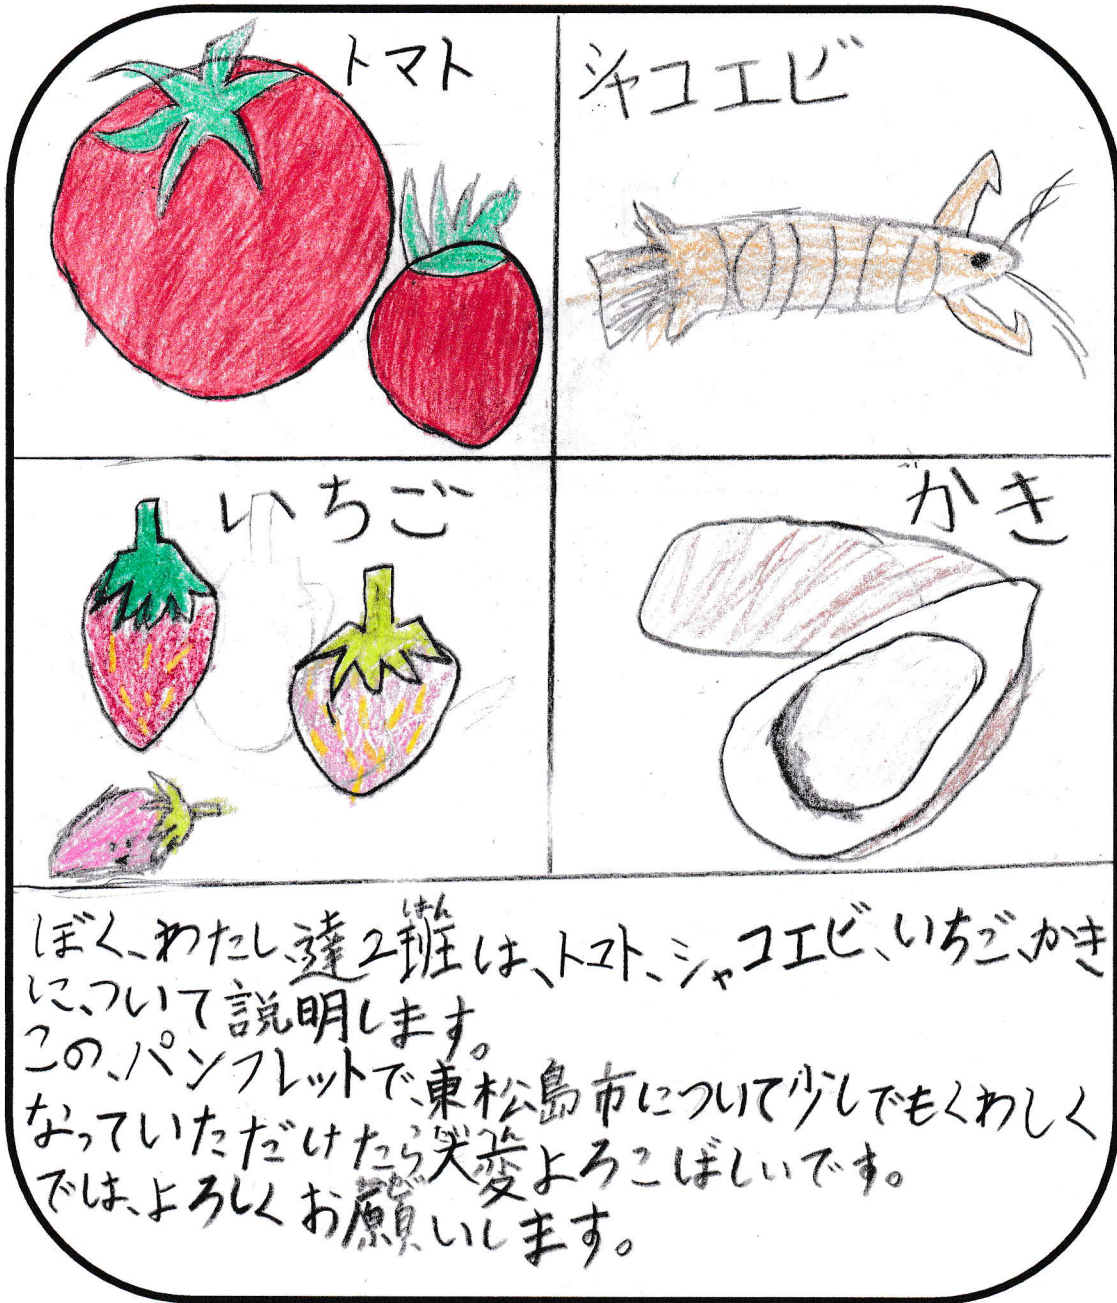 トマト
シャコエビ
いちご
かき
ぼく、わたし達2班は、トマト、シャコエビ、いちご、かき
に、ついて説明します。
この、パンフレットで、東松島市について少しでもくわしく
なっていただけたら大変よろこばしいです。
では、よろしくお願いします。